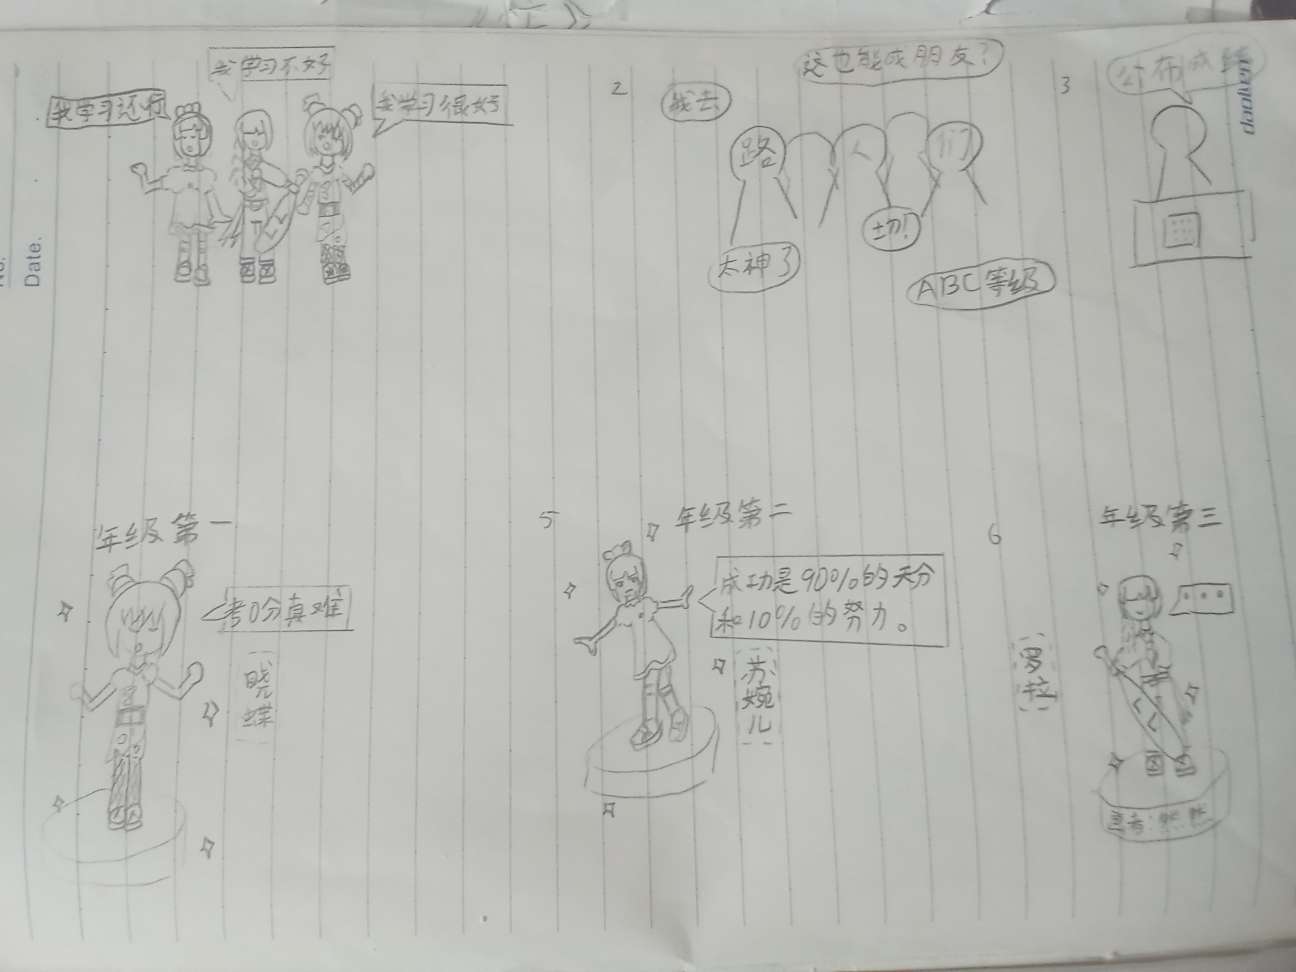 No.
Date.
我学习还行
我学习不好
我学习很好
2
我去
这也能成朋友?
路
人
们
太神了
切!
ABC等级
3
公布成绩
年级第一
考0分真难
晓蝶
5
年级第二
成功是90%的天分
和10%的努力。
苏婉儿
6
年级第三
...
罗拉